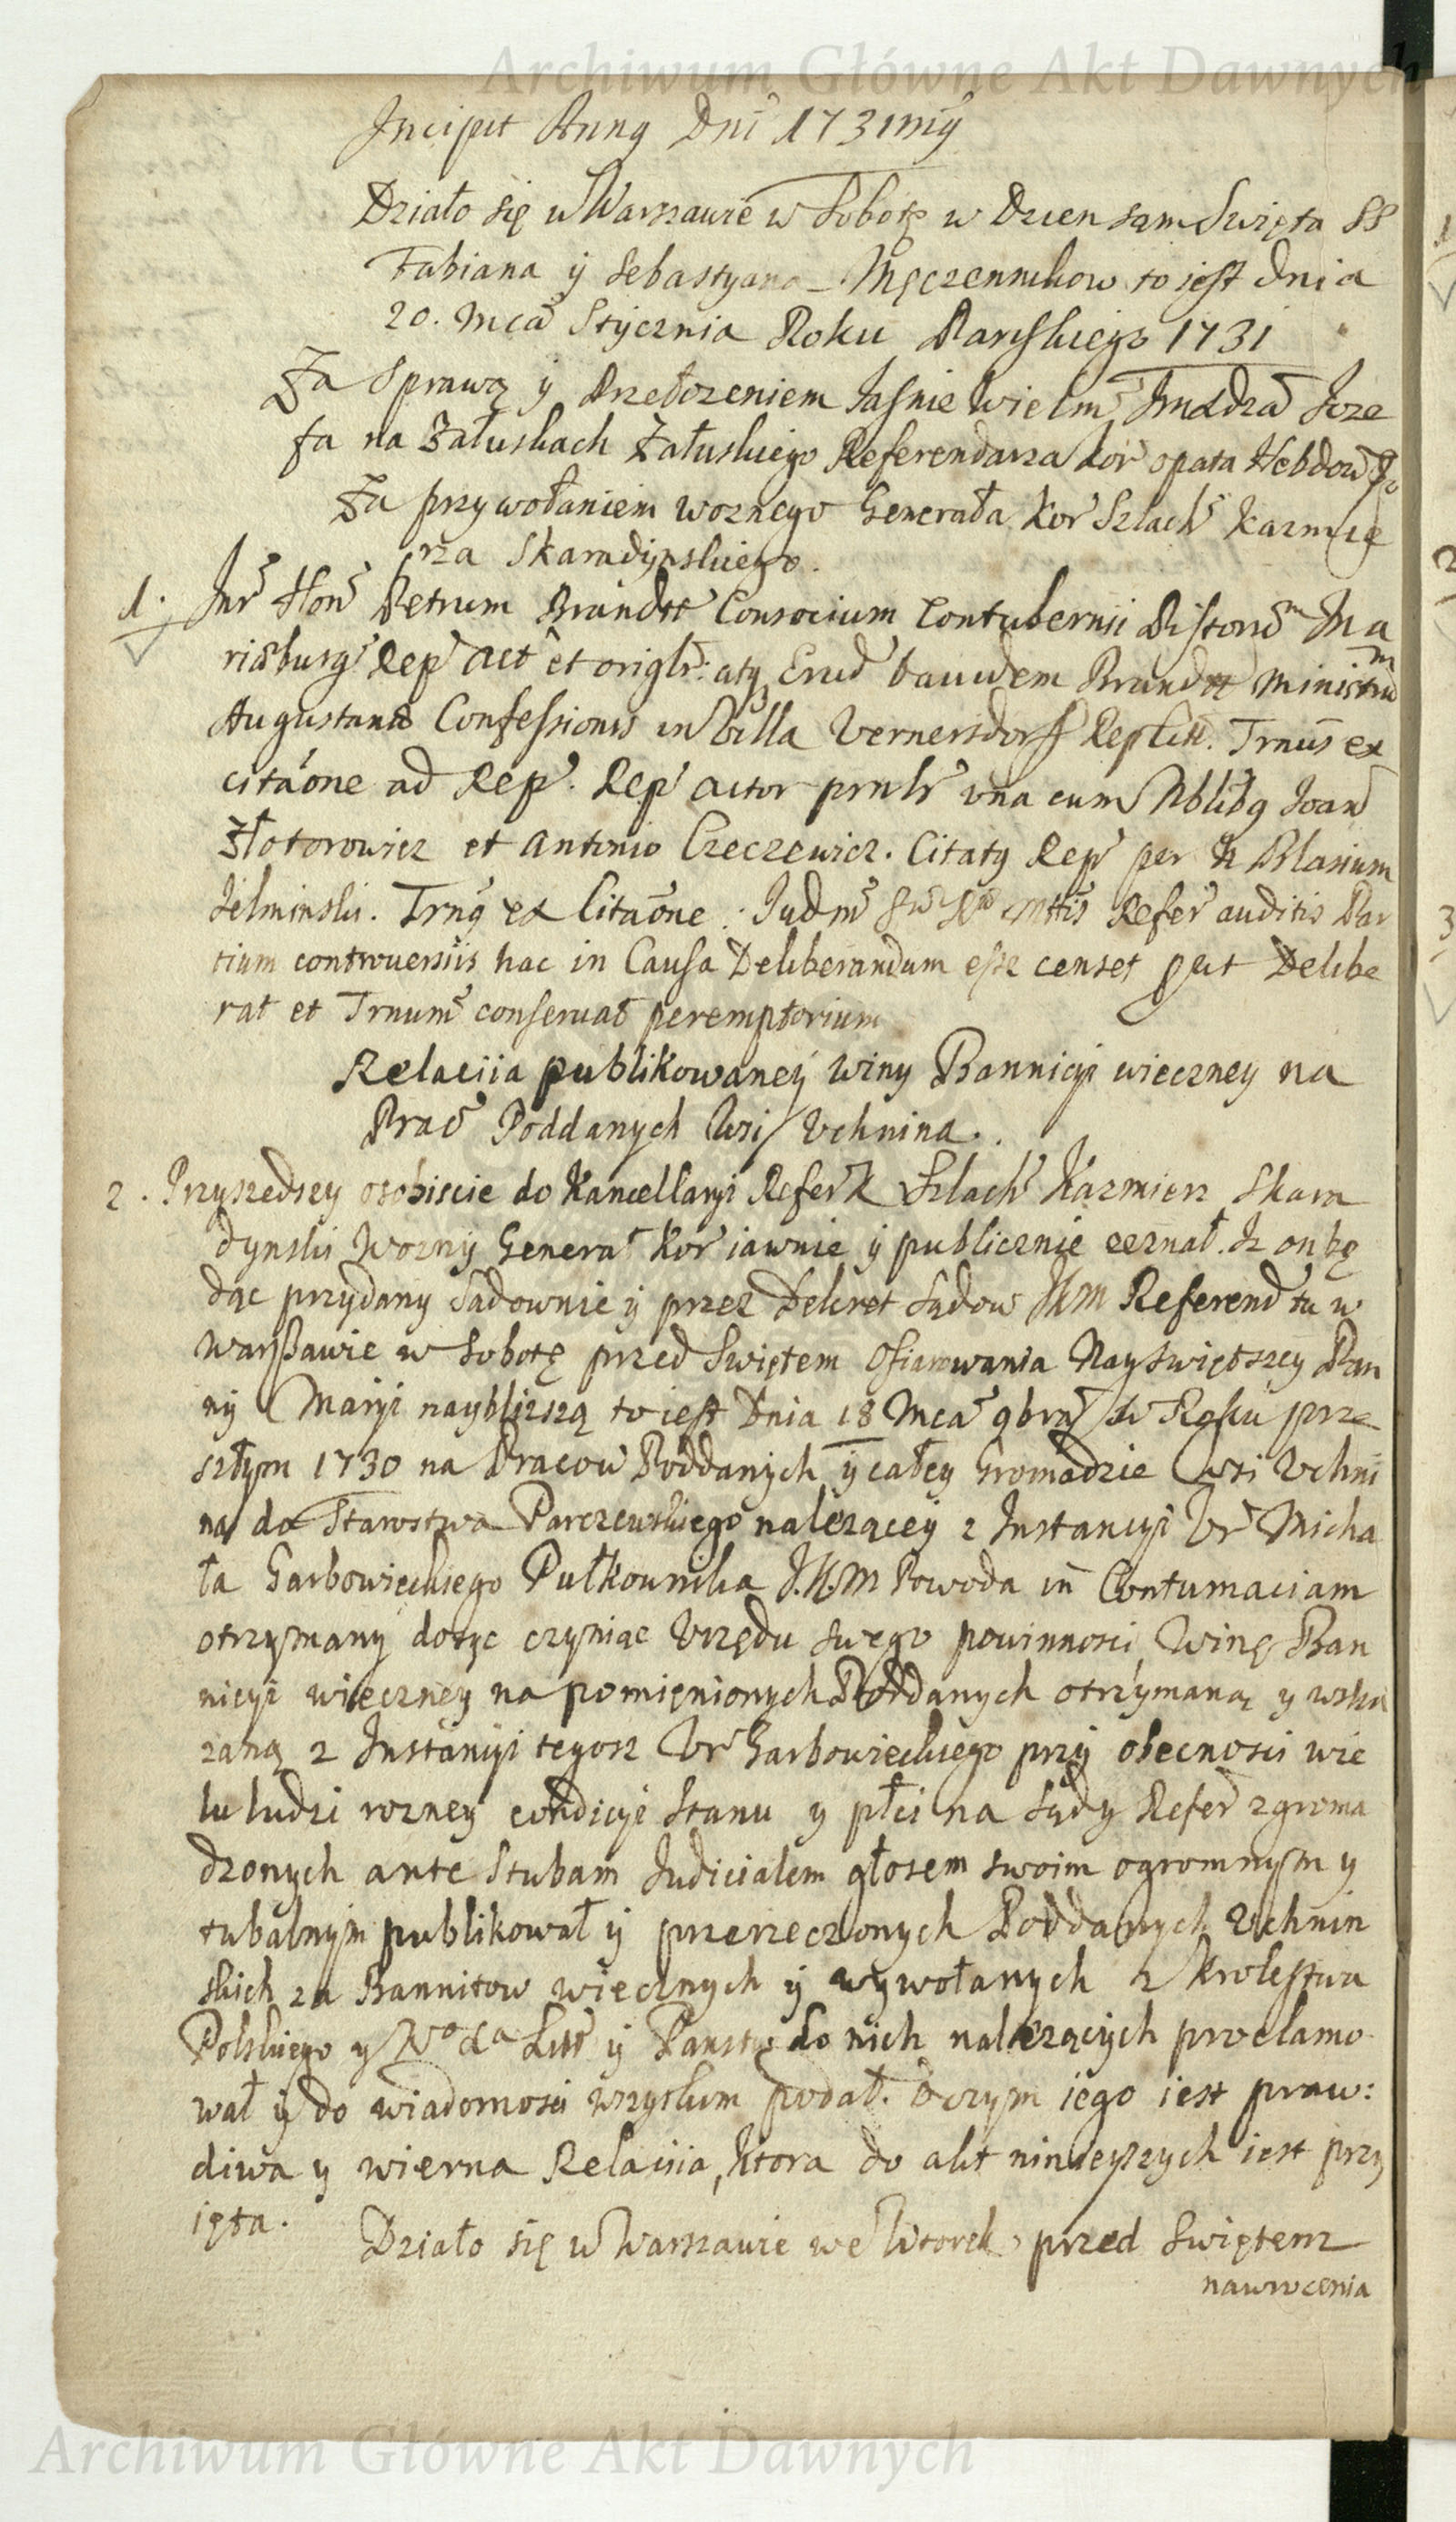 Archiwum Główne Akt Dawnych
Incipit Annq Dni 1731mỹ
Działo się w Warszawie w Sobotę w Dzien sam Swięta SS
Fabiana ÿ Sebastyana Męczennikow to jest dnia
20. Mca Stycznia Roku Panskiego 1731
Za Sprawą ÿ Przełozeniem Jasnie Wielm Jmci Xdza Joze
fa na Załuskach Załuskiego Referendarza Kor opata Hebdow
Za przywołaniem woznego Generała Kor Szlach Kazmie
rza Skaradynskiego.
1. Inr Hon Petrum Brandtt Consocium Contubernii Pistorum Ma
riæburg Rep Act et origlr: atq Erud Davidem Brandtt Ministrum
Augustanæ Confessionis in Villa Vernersdorff Rep Citt. Trnus ex
citaone ad Rep. Rep actor pnlr una cum Nblibq Joan
Złotorowicz et Antonio Czeczewicz. Citatq Rep per Blasium
Zelminski. Trnq ex Citaone. Judm Mttis Refer auditis Par
tium controversiis hac in Causa Deliberandum esse censet put Delibe
rat et Trnum conservat peremptorium
Relaciia publikowaney winy Bannicyi wieczney na
Prac Poddanych Wsi Uchnina.
2. Przyszedszy osobiscie do Kancellaryi Refer K Szlach Kazmierz Skara
dynski Wozny Generał Kor iawnie ÿ publicznie zeznał. Iz on bę
dąc przydany Sądownie ÿ przez Dekret Sądow JKM Referend tu w
Warszawie w Sobotę przed Swiętem Ofiarowania Nayswiętszey Pan
nÿ Maryi nayblizszą to iest Dnia 18 Mca 9bra w Roku prze
szłym 1730 na Pracow Poddanych ÿ całey Gromadzie wsi Uchni
na do Starostwa Parczewskiego nalezącey z Instancyi Ur Micha
ła Garbowieckiego Pułkownika J.K.M Powoda in Contumaciam
otrzymany dosyc czyniąc Urzędu swego powinnosci, Winę Ban
nicyi wieczney na pomięnionych Poddanych otrzymaną y wska
zaną z Instancyi tegosz Ur Garbowieckiego przy obecnosci wie
lu ludzi rozney condicyi Stanu y płci na Sądy Refer zgroma
dzonych ante Stubam Judicialem głosem swoim ogromnym y
tubalnym publikował ÿ przerzeczonych Poddanych Uchnin
skich za Bannitow wiecznych ÿ wywołanych z Krolestwa
Polskiego y Wo Xa Litt ÿ Panstw do nich nalezących proclamo
wał ÿ do wiadomosci wszystkim podał. O czym iego iest praw:
diwa y wierna Relaciia, ktora do akt ninieyszych iest przy
ięta.
Działo się w Warszawie we Wtorek przed Swiętem
nawrocenia
Archiwum Główne Akt Dawnych